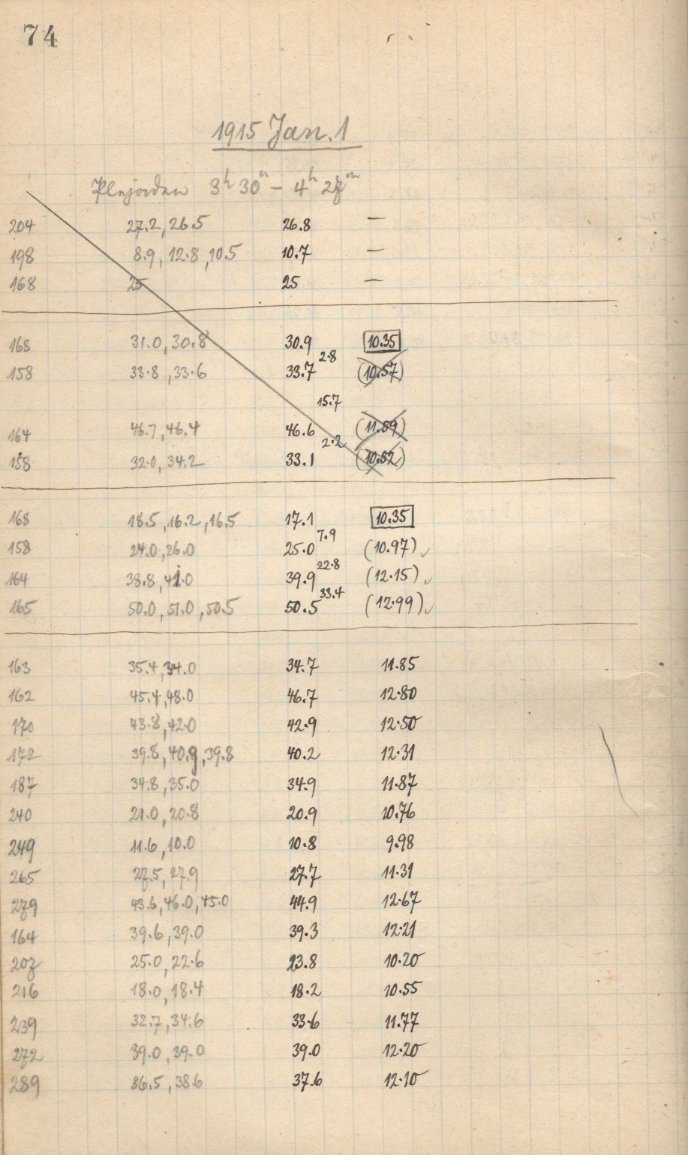 74
1915 Jan. 1
Plejaden 3h 30m – 4h 27m
204 27.2, 26.5 26.8 —
198 8.9, 12.8, 10.5 10.7 —
168 25 25 —
168 31.0, 30.8 30.9 10.35
2.8
158 33.8, 33.6 33.7 (10.57)
15.7
164 46.7, 46.4 46.6 (11.59)
2.2
158 32.0, 34.2 33.1 (10.52)
168 18.5, 16.2, 16.5 17.1 10.35
7.9
158 24.0, 26.0 25.0 (10.97)
22.8
164 38.8, 41.0 39.9 (12.15)
33.4
165 50.0, 51.0, 50.5 50.5 (12.99)
163 35.4, 34.0 34.7 11.85
162 45.4, 48.0 46.7 12.80
170 43.8, 42.0 42.9 12.50
172 39.8, 40.9, 39.8 40.2 12.31
187 34.8, 35.0 34.9 11.87
240 21.0, 20.8 20.9 10.76
249 11.6, 10.0 10.8 9.98
265 27.5, 27.9 27.7 11.31
279 43.6, 46.0, 45.0 44.9 12.67
164 39.6, 39.0 39.3 12.21
207 25.0, 22.6 23.8 10.20
216 18.0, 18.4 18.2 10.55
239 32.7, 34.6 33.6 11.77
272 39.0, 39.0 39.0 12.20
289 36.5, 38.6 37.6 12.10